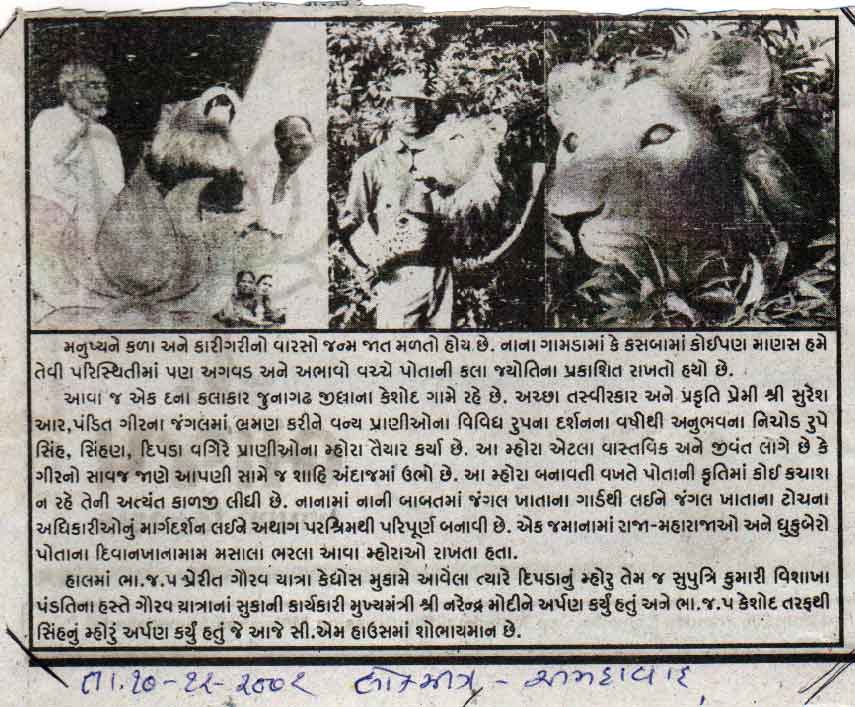 મનુષ્યને કળા અને કારીગરીનો વારસો જન્મ જાત મળતો હોય છે. નાના ગામડામાં કે કસબામાં કોઈપણ માણસ હમે
તેવી પરિસ્થિતીમાં પણ અગવડ અને અભાવો વચ્ચે પોતાની કલા જ્યોતિના પ્રકાશિત રાખતો હયો છે.
આવા જ એક દના કલાકાર જુનાગઢ જીલ્લાના કેશોદ ગામે રહે છે. અચ્છા તસ્વીરકાર અને પ્રકૃતિ પ્રેમી શ્રી સુરેશ
આર,પંડિત ગીરના જંગલમાં ભ્રમણ કરીને વન્ય પ્રાણીઓના વિવિધ રુપના દર્શનના વર્ષોથી અનુભવના નિચોડ રુપે
સિંહ, સિંહણ, દિપડા વગેરે પ્રાણીઓના મ્હોરા તૈયાર કર્યા છે. આ મ્હોરા એટલા વાસ્તવિક અને જીવંત લાગે છે કે
ગીરનો સાવજ જાણે આપણી સામે જ શાહિ અંદાજમાં ઉભો છે. આ મ્હોરા બનાવતી વખતે પોતાની કૃતિમાં કોઈ કચાશ
ન રહે તેની અત્યંત કાળજી લીધી છે. નાનામાં નાની બાબતમાં જંગલ ખાતાના ગાર્ડથી લઈને જંગલ ખાતાના ટોચના
અધિકારીઓનું માર્ગદર્શન લઈને અથાગ પરશ્રિમથી પરિપૂર્ણ બનાવી છે. એક જમાનામાં રાજા-મહારાજાઓ અને ઘુકુબેરો
પોતાના દિવાનખાનામામ મસાલા ભરલા આવા મ્હોરાઓ રાખતા હતા.
હાલમાં ભા.જ.પ પ્રેરીત ગૌરવ યાત્રા કેઘોસ મુકામે આવેલા ત્યારે દિપડાનું મ્હોરુ તેમ જ સુપુત્રિ કુમારી વિશાખા
પંડતિના હસ્તે ગૌરવ યાત્રાનાં સુકાની કાર્યકારી મુખ્યમંત્રી શ્રી નરેન્દ્ર મોદીને અર્પણ કર્યું હતું અને ભા.જ.પ કેશોદ તરફથી
સિંહનું મ્હોરું અર્પણ કર્યું હતું જે આજે સી.એમ હાઉસમાં શોભાયમાન છે.
તા.૧૦-૧૨-૨૦૦૨ લોકમીત્ર - અમદાવાદ